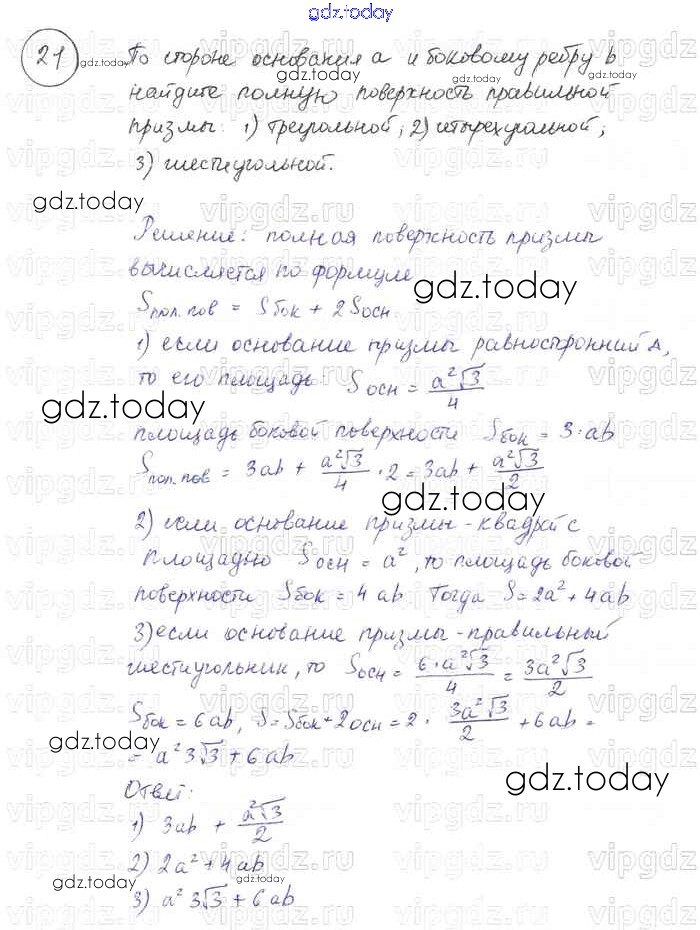 gdz.today
21 По стороне основания a и боковому ребру b
найдите полную поверхность правильной
призмы: 1) треугольной; 2) четырехугольной;
3) шестиугольной.
gdz.today
Решение: полная поверхность призмы
вычисляется по формуле
gdz.today
Sпол.пов = Sбок + 2Sосн
1) если основание призмы равносторонний Δ,
то его площадь Sосн = a²√3/4
gdz.today
площадь боковой поверхности Sбок = 3·ab
Sпол.пов = 3ab + a²√3/4 · 2 = 3ab + a²√3/2
gdz.today
2) если основание призмы - квадрат с
площадью Sосн = a², то площадь боковой
поверхности Sбок = 4ab Тогда S = 2a² + 4ab
3) если основание призмы - правильный
шестиугольник, то Sосн = 6·a²√3/4 = 3a²√3/2
Sбок = 6ab, S = Sбок + 2осн = 2 · 3a²√3/2 + 6ab =
gdz.today
= a² 3√3 + 6ab
gdz.today
Ответ:
1) 3ab + a²√3/2
2) 2a² + 4ab
gdz.today
3) a² 3√3 + 6ab